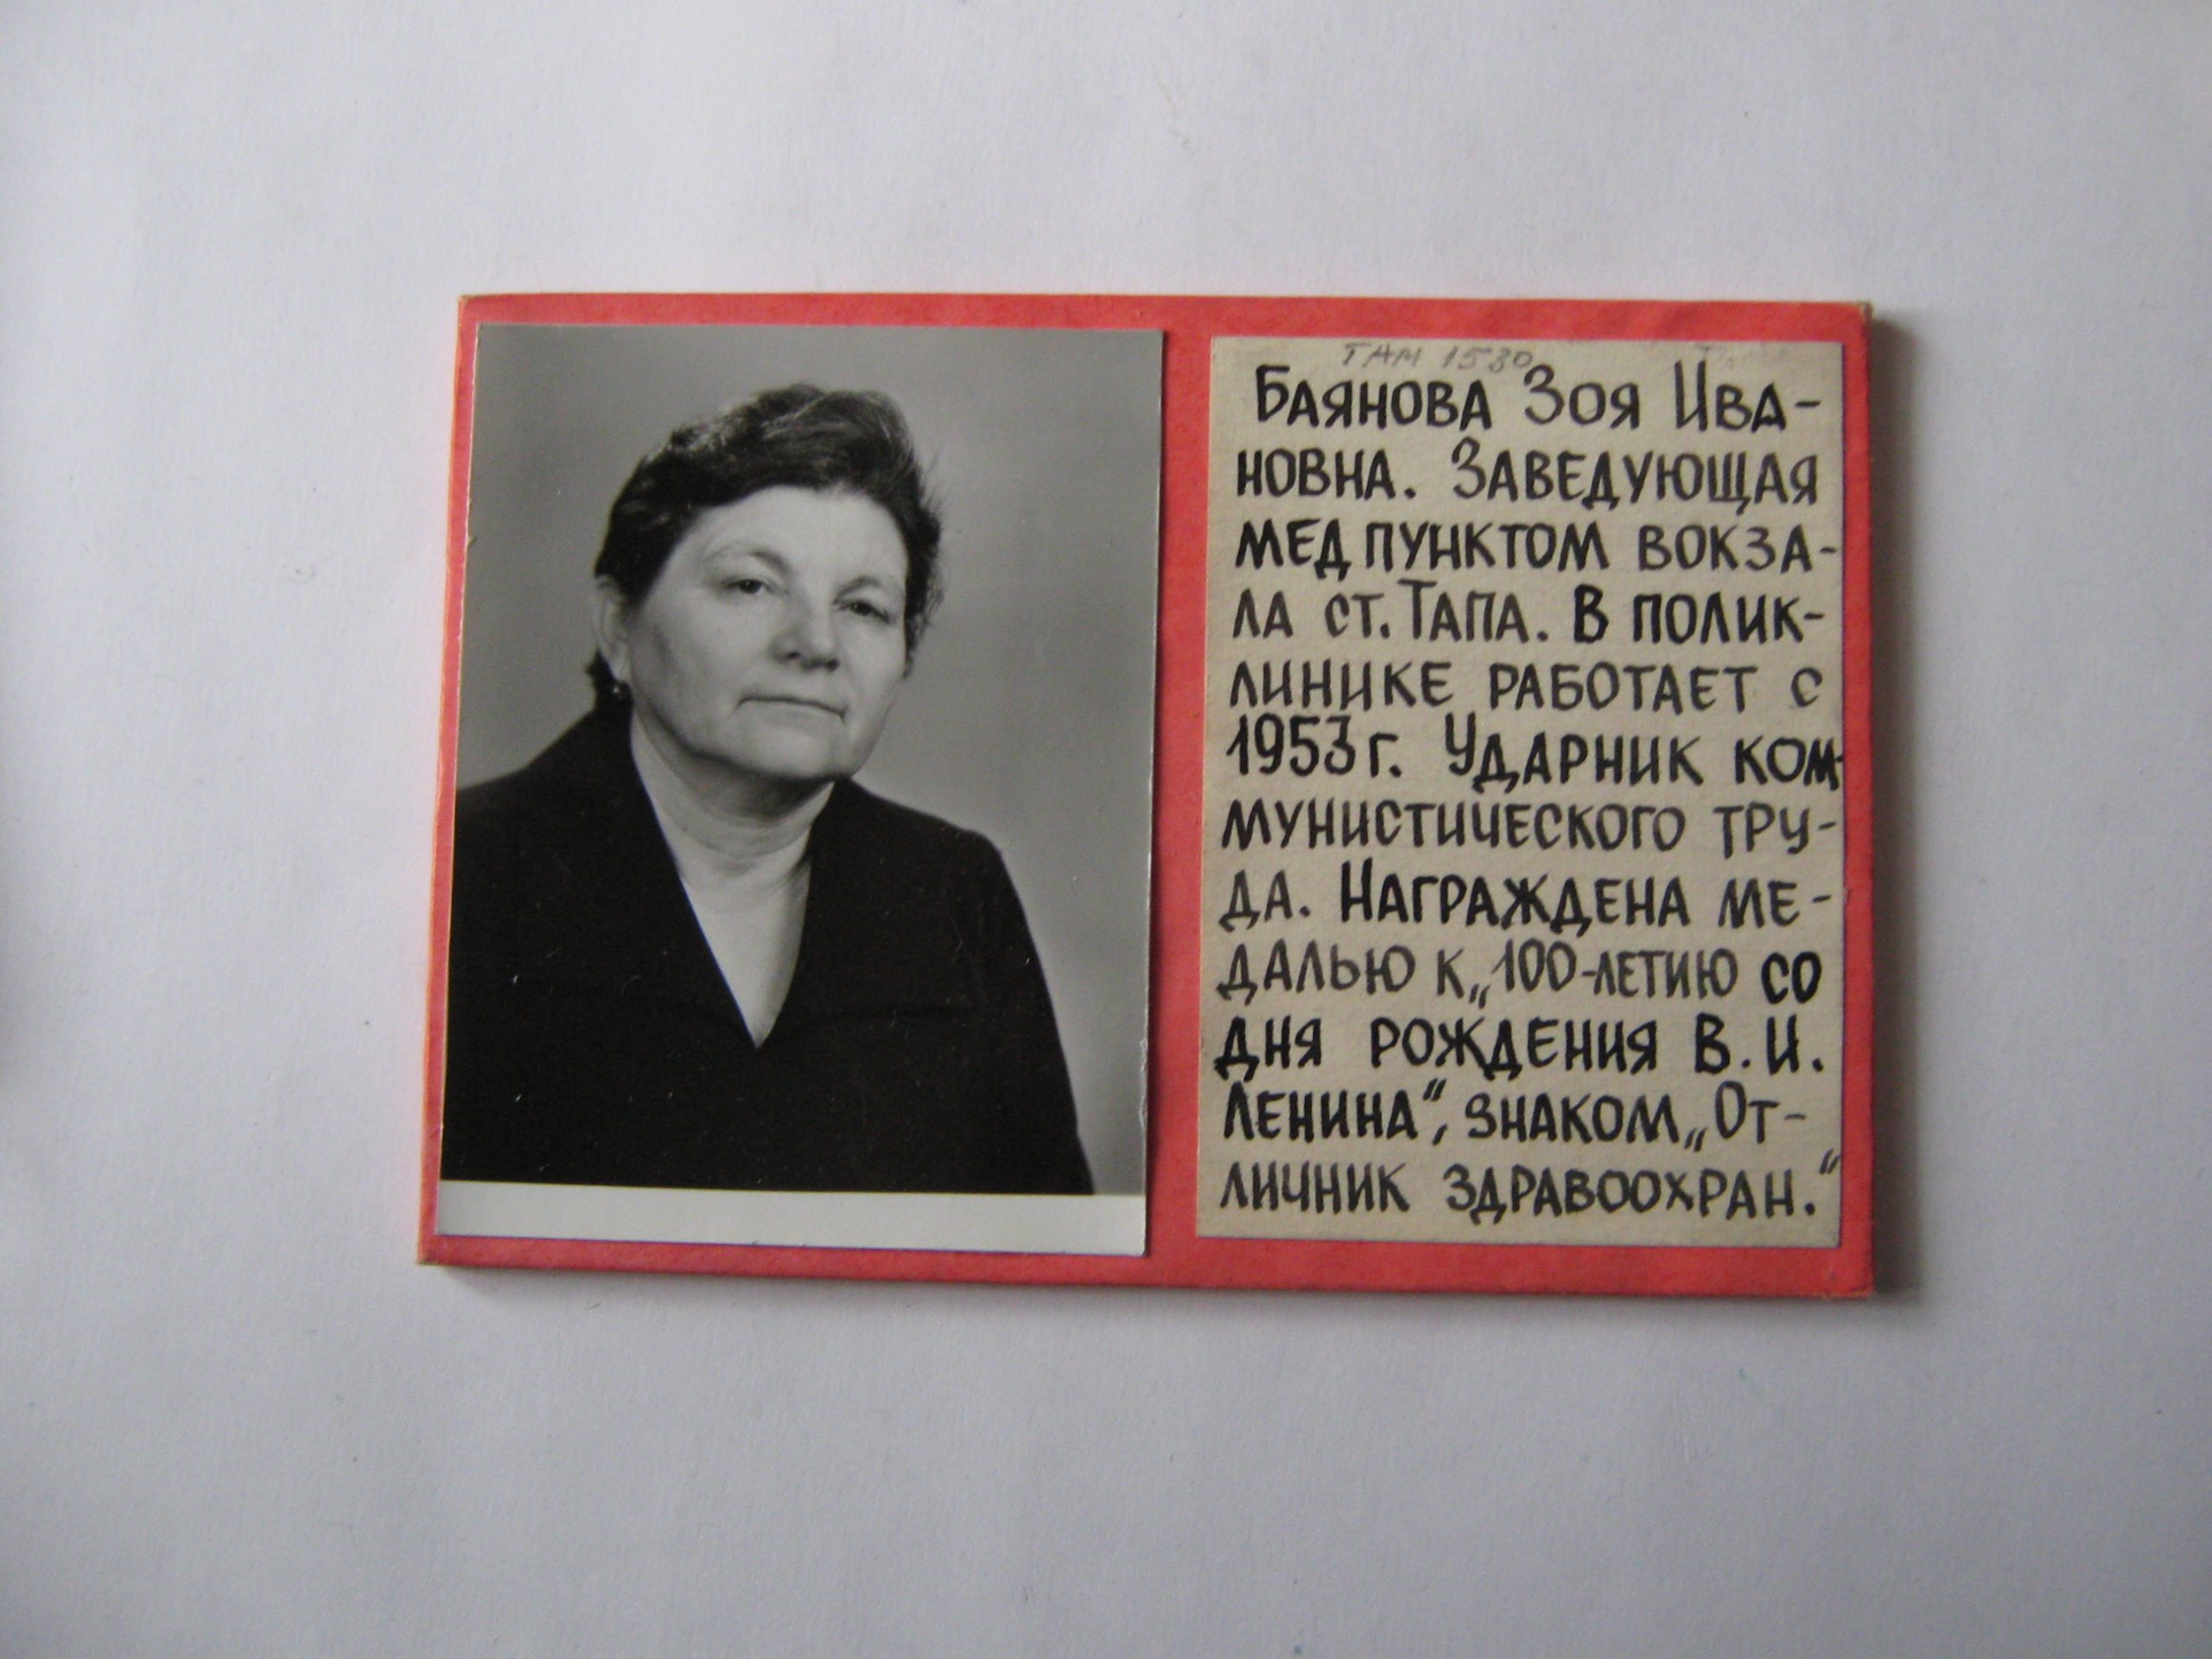 ТАМ 1530
Баянова Зоя Ива-
новна. Заведующая
мед пунктом вокза-
ла ст. Тапа. В полик-
линике работает с
1953 г. Ударник ком-
мунистического тру-
да. Награждена ме-
далью к „100-летию со
дня рождения В. И.
Ленина“, знаком „От-
личник здравоохран.“